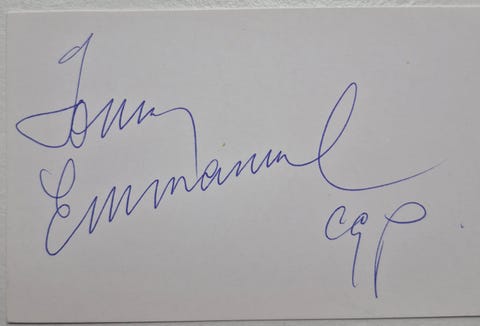 Tommy
Emmanuel
cgp.